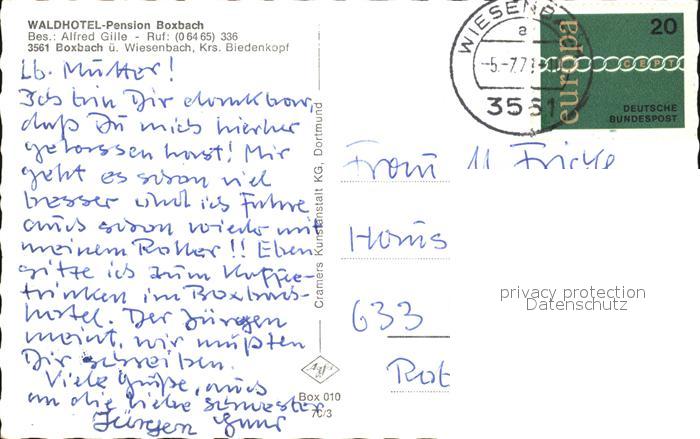 WALDHOTEL-Pension Boxbach
Bes.: Alfred Gille - Ruf: (0 64 65) 336
3561 Boxbach ü. Wiesenbach, Krs. Biedenkopf
Lb. Mutter!
Ich bin Dir dankbar,
daß Du mich hierher
gelassen hast! Mir
geht es schon viel
besser und ich fahre
auch schon wieder mit
meinem Roller!! Eben
sitze ich zum Kaffee-
trinken im Boxbach-
hotel. Der Jürgen
meint, wir müßten
Dir schreiben.
Viele Grüße, auch
an die liebe Schwester
Jürgen
Cramers Kunstanstalt KG, Dortmund
Box 010
70/3
WIESENB
a
-5.-7.71
3561
europa
20
CEPT
DEUTSCHE
BUNDESPOST
Frau Fricke
Haus
633
privacy protection
Datenschutz